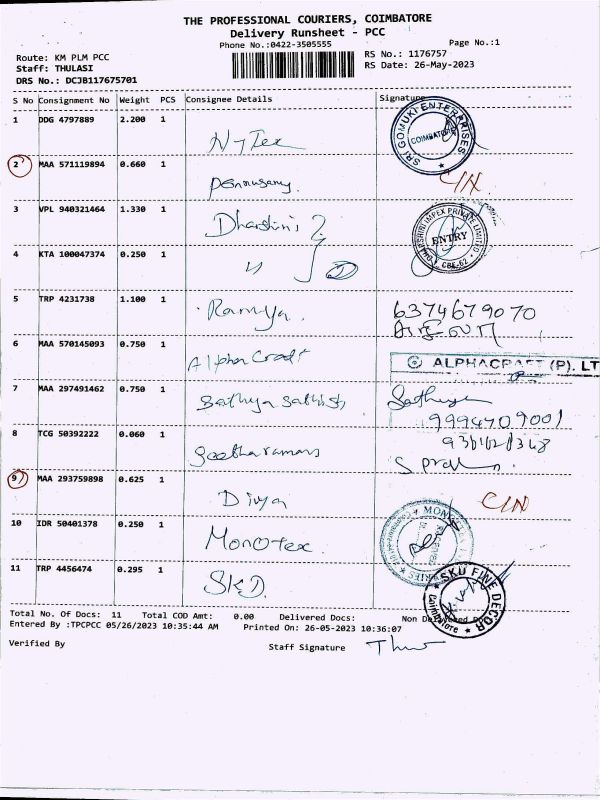 THE PROFESSIONAL COURIERS, COIMBATORE
Delivery Runsheet - PCC
Phone No.:0422-3505555
Page No.:1
Route: KM PLM PCC
RS No.: 1176757
Staff: THULASI
RS Date: 26-May-2023
DRS No.: DCJB117675701
S No Consignment No Weight PCS Consignee Details Signature
1 DDG 4797889 2.200 1
SRI GOMUKI ENTERPRISES COIMBATORE
2 MAA 571119894 0.660 1 C/N
3 VPL 940321464 1.330 1 Dharshini
IMPEX PRIVATE LIMITED ENTRY CBE-62
4 KTA 100047374 0.250 1 "
5 TRP 4231738 1.100 1 Ramya. 6374679070
6 MAA 570145093 0.750 1 Alphacraft ALPHACRAFT (P). LT
7 MAA 297491462 0.750 1 Sathya Sathish Sathiya
9994709001
8 TCG 50392222 0.060 1 Seetharamans
9 MAA 293759898 0.625 1 Divya C/N
10 IDR 50401378 0.250 1 Monotex.
11 TRP 4456474 0.295 1 SKD.
SKU FINE DECOR Coimbatore
Total No. Of Docs: 11 Total COD Amt: 0.00 Delivered Docs: Non Delivered
Entered By :TPCPCC 05/26/2023 10:35:44 AM Printed On: 26-05-2023 10:36:07
Verified By Staff Signature